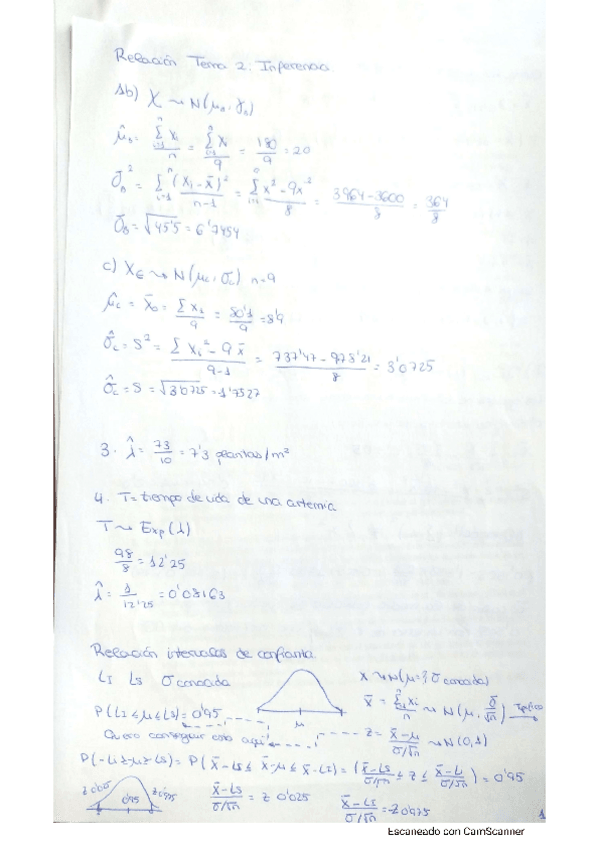 Relación Tema 2: Inferencia.
1b) X ~ N(μb, σb)
μ̂b = Σxi/n = Σxi/9 = 180/9 = 20
σ̂b² = Σ(xi - x̄)²/n-1 = Σx² - 9x̄²/8 = 3964-3600/8 = 364/8
σ̂b = √45'5 = 6'7454
c) Xc ~ N(μc, σc) n=9
μ̂c = x̄c = Σxi/9 = 80'1/9 = 8'9
σ̂c = S² = Σxi² - 9x̄/9-1 = 737'47 - /8 = 3'0725
σ̂c = S = √3'0725 = 1'7527
3. λ̂ = 73/10 = 7'3 plantas/m²
4. T = tiempo de vida de una artemia
T ~ Exp(λ)
98/8 = 12'25
λ̂ = 1/12'25 = 0'08163
Relación intervalos de confianza.
LI LS σ conocida
X ~ N(μ=?, σ conocida)
x̄ = Σxi/n ~ N(μ, σ/√n)
P(LI ≤ μ ≤ LS) = 0'95
μ
Quiero conseguir esto aquí
Z = x̄-μ/σ/√n ~ N(0,1)
P(-LI ≥ -μ ≥ -LS) = P(x̄-LS ≤ x̄-μ ≤ x̄-LI) = (x̄-LS/σ/√n ≤ Z ≤ x̄-LI/σ/√n) = 0'95
z0'025 0'95 z0'975
x̄-LS/σ/√n = z 0'025
x̄-LI/σ/√n = z0'975
1
Escaneado con CamScanner